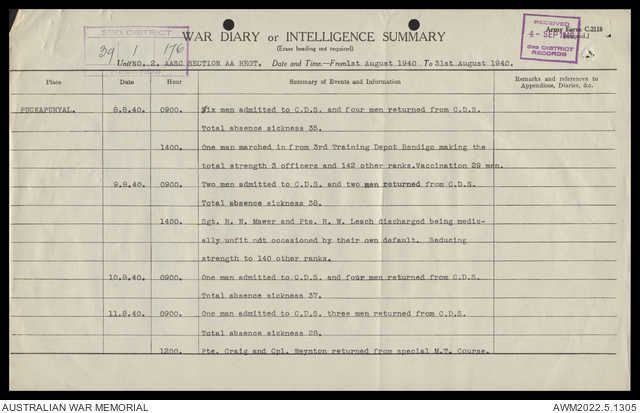 3RD DISTRICT
39 1 176
RECEIVED
4 - SEP 1940
3RD DISTRICT
RECORDS
WAR DIARY or INTELLIGENCE SUMMARY
Army Form C.2118
(Erase heading not required)
Unit NO. 2. AASC SECTION AA REGT. Date and Time.—From 1st August 1940 To 31st August 1940.
Place Date Hour Summary of Events and Information Remarks and references to
Appendices, Diaries, &c.
PUCKAPUNYAL. 8.8.40. 0900. Six men admitted to C.D.S. and four men returned from C.D.S.
Total absence sickness 35.
1400. One man marched in from 3rd Training Depot Bendigo making the
total strength 3 officers and 142 other ranks. Vaccination 29 men.
9.8.40. 0900. Two men admitted to C.D.S. and two men returned from C.D.S.
Total absence sickness 38.
1400. Sgt. R. N. Mawer and Pte. R. W. Leach discharged being medic-
ally unfit not occasioned by their own default. Reducing
strength to 140 other ranks.
10.8.40. 0900. One man admitted to C.D.S. and four men returned from C.D.S.
Total absence sickness 37.
11.8.40. 0900. One man admitted to C.D.S. three men returned from C.D.S.
Total absence sickness 28.
1200. Pte. Craig and Cpl. Weynton returned from special M.T. Course.
AUSTRALIAN WAR MEMORIAL AWM2022.5.1305